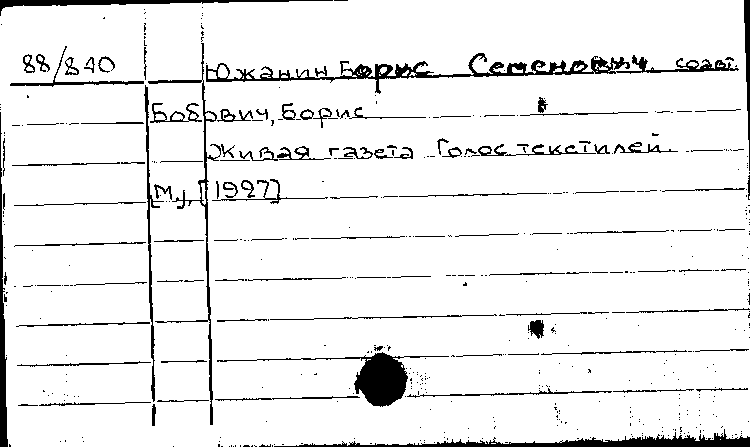 88/840 Южанин, Борис Семенович, соавт.
Бобович, Борис
Живая газета Голос текстилей.
[М.], [1927]